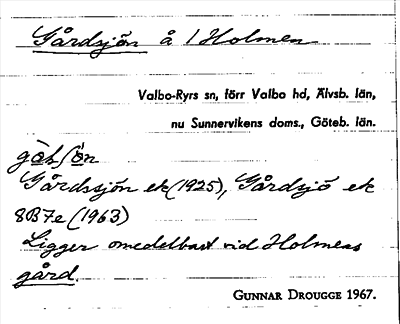 Gårdsjön å 1 Holmen
Valbo-Ryrs sn, förr Valbo hd, Älvsb. län,
nu Sunnervikens doms., Göteb. län.
Gårdssjön ek (1925), Gårdsjö ek
8B7e (1963)
Ligger omedelbart vid Holmens
gård.
GUNNAR DROUGGE 1967.